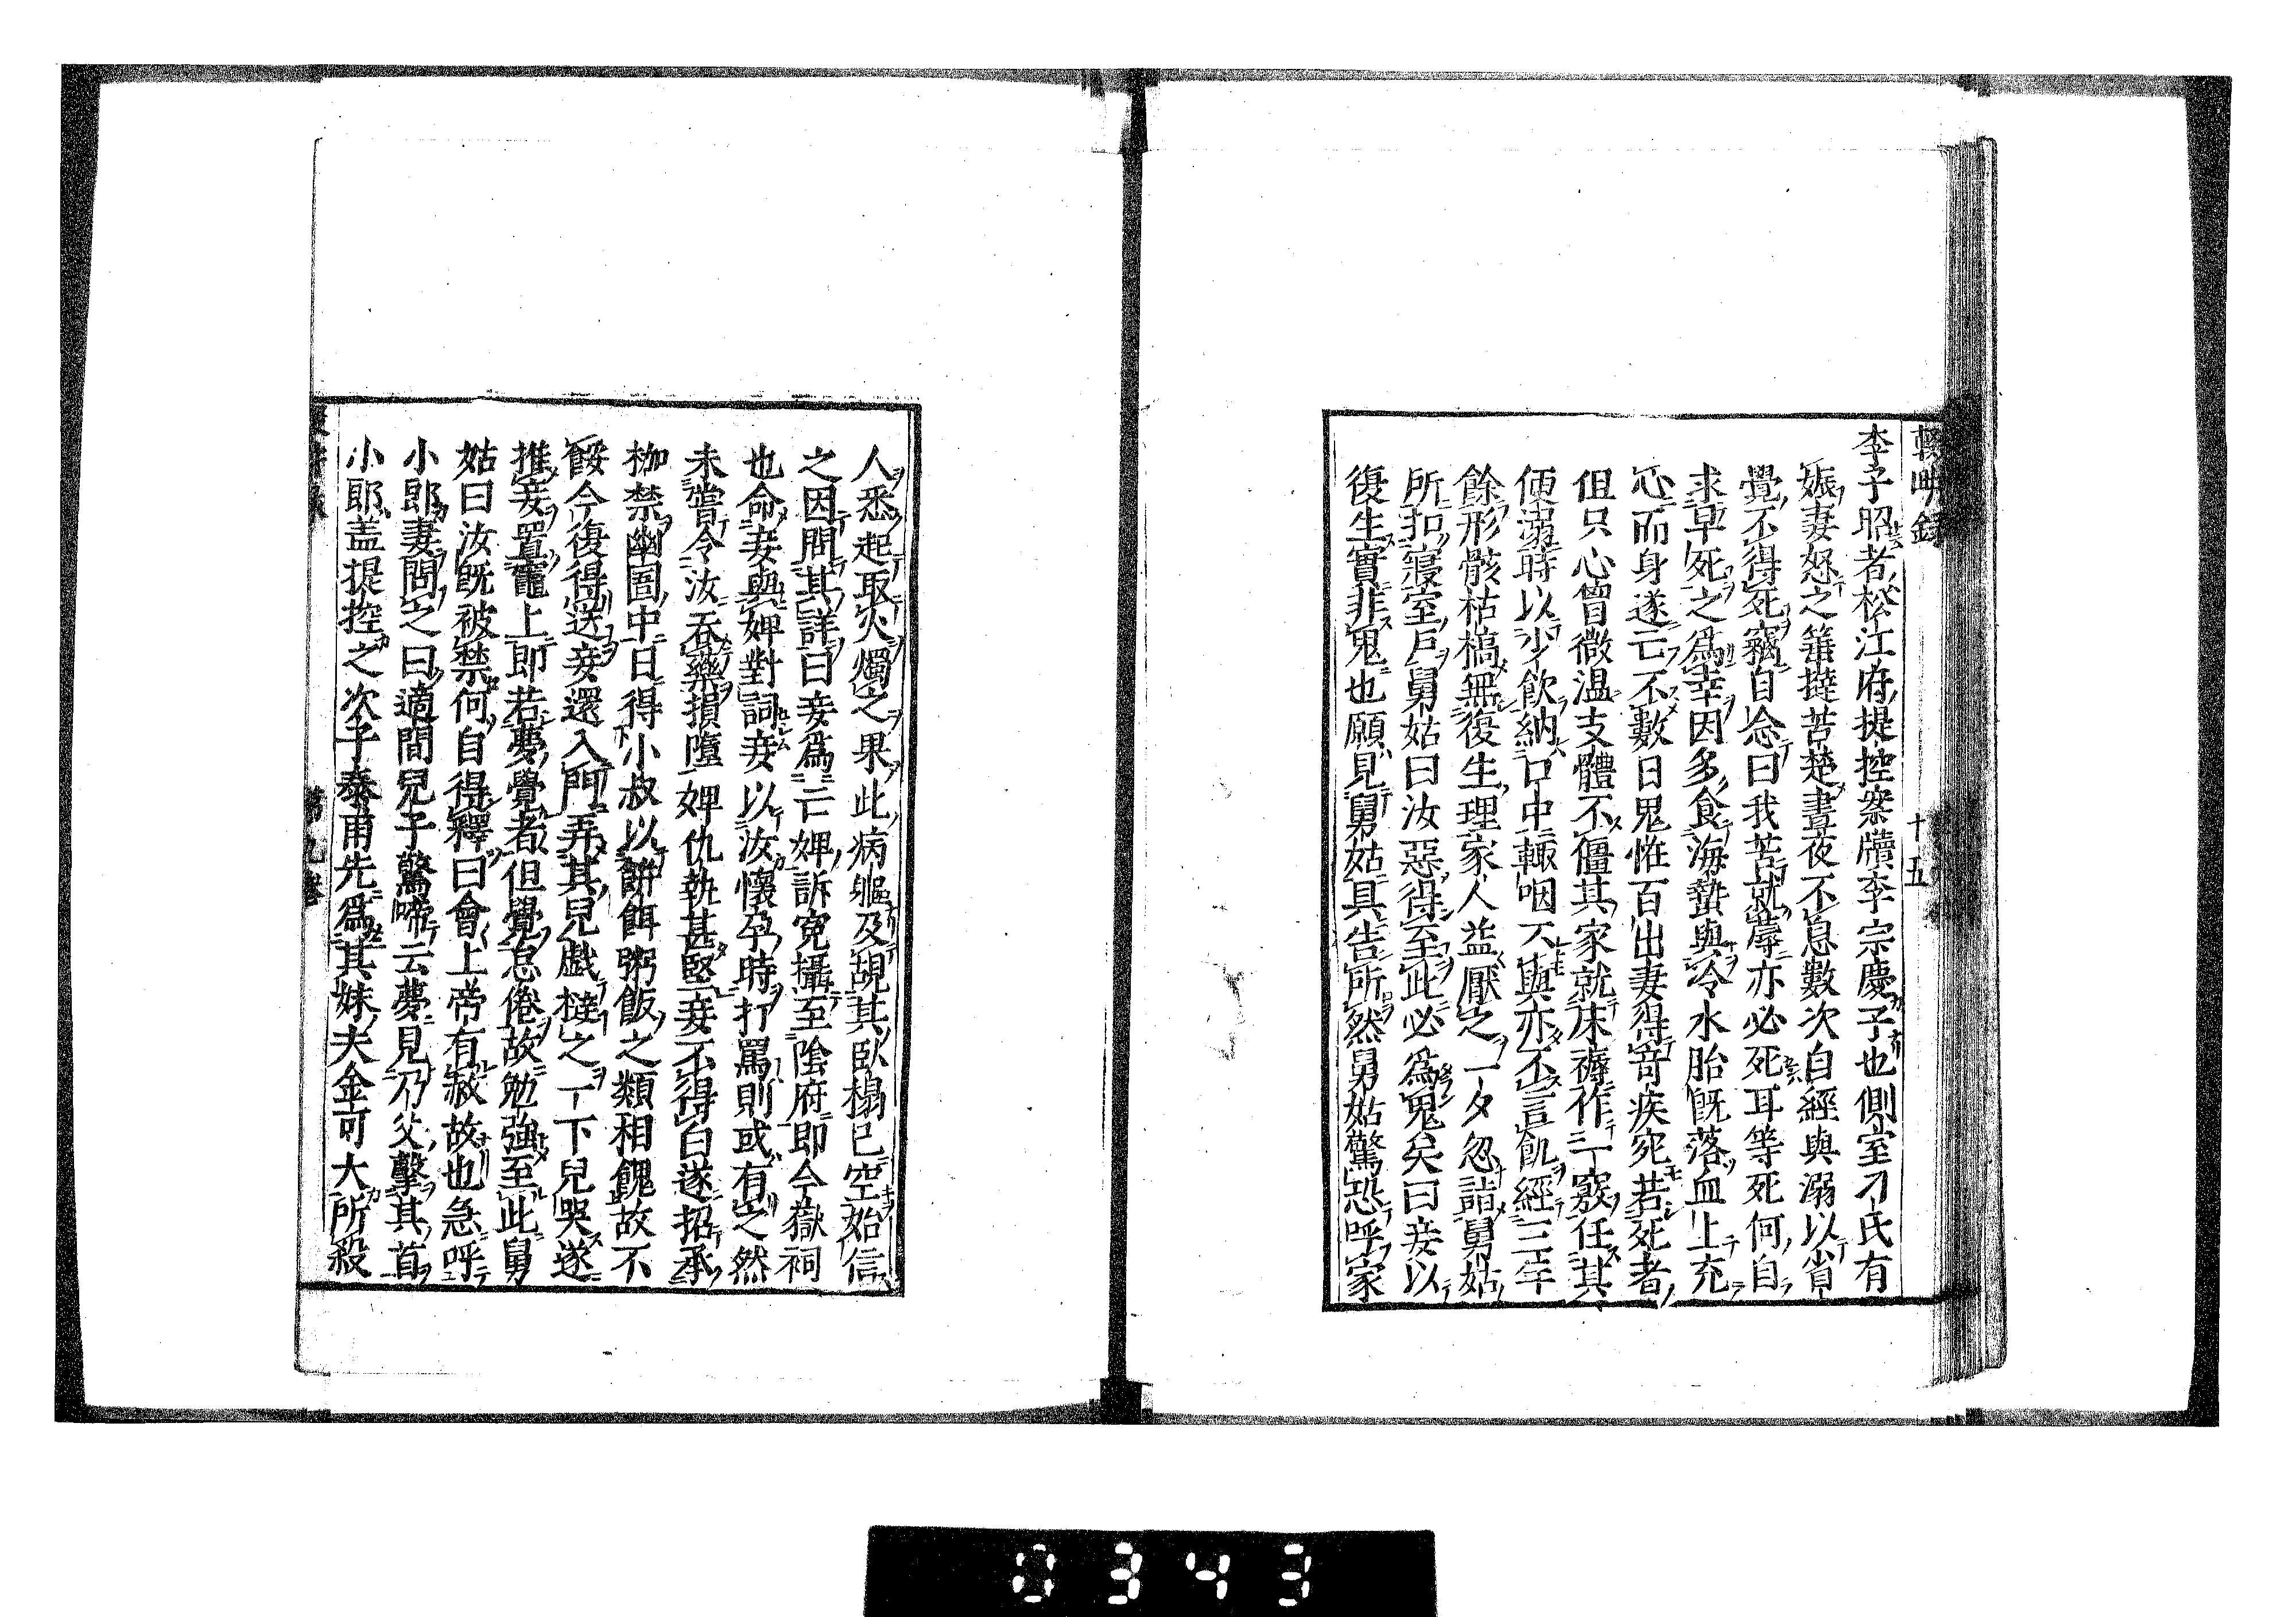 輟畊録
十五
李子昭者松江府提控案牘李宗慶子也側室刁氏有
娠妻怒之箠撻苦楚晝夜不息數次自經與溺以省
覺不得死竊自念曰我苦就蓐亦必死耳等死何自
求早死之爲幸因多食海蜇與冷水胎既落血上充
心而身遂亡不數日鬼恠百出妻得奇疾宛若死者
但只心曾微温支體不僵其家就床褥作一竅任其
便溺時以少飲納口中輒咽不與亦不言飢經三年
餘形骸枯槁無復生理家人益厭之一夕忽詣舅姑
所扣寢室戶舅姑曰汝惡得至此必爲鬼矣曰妾以
復生實非鬼也願見舅姑具告所然舅姑驚恐呼家
人悉起取火燭之果此病軀及覘其臥榻已空始信
之因問其詳曰妾爲亡婢訴寃攝至陰府即今嶽祠
也命妾與婢對詞妾以汝懷孕時打罵則或有之然
未嘗令汝吞藥損墮婢仇執甚堅妾不得白遂招承
枷禁幽圄中日得小叔以餠餌粥飯之類相餽故不
餒今復得送妾還入門弄其兒戲撻之一下兒哭遂
推妾置竈上即若夢覺者但覺怠倦故勉強至此舅
姑曰汝旣被禁何自得釋曰會上帝有赦故也急呼
小郎妻問之曰適間兒子驚啼云夢見乃父擊其首
小郎盖提控之次子泰甫先爲其妹夫金可大所殺
第九巻
0343